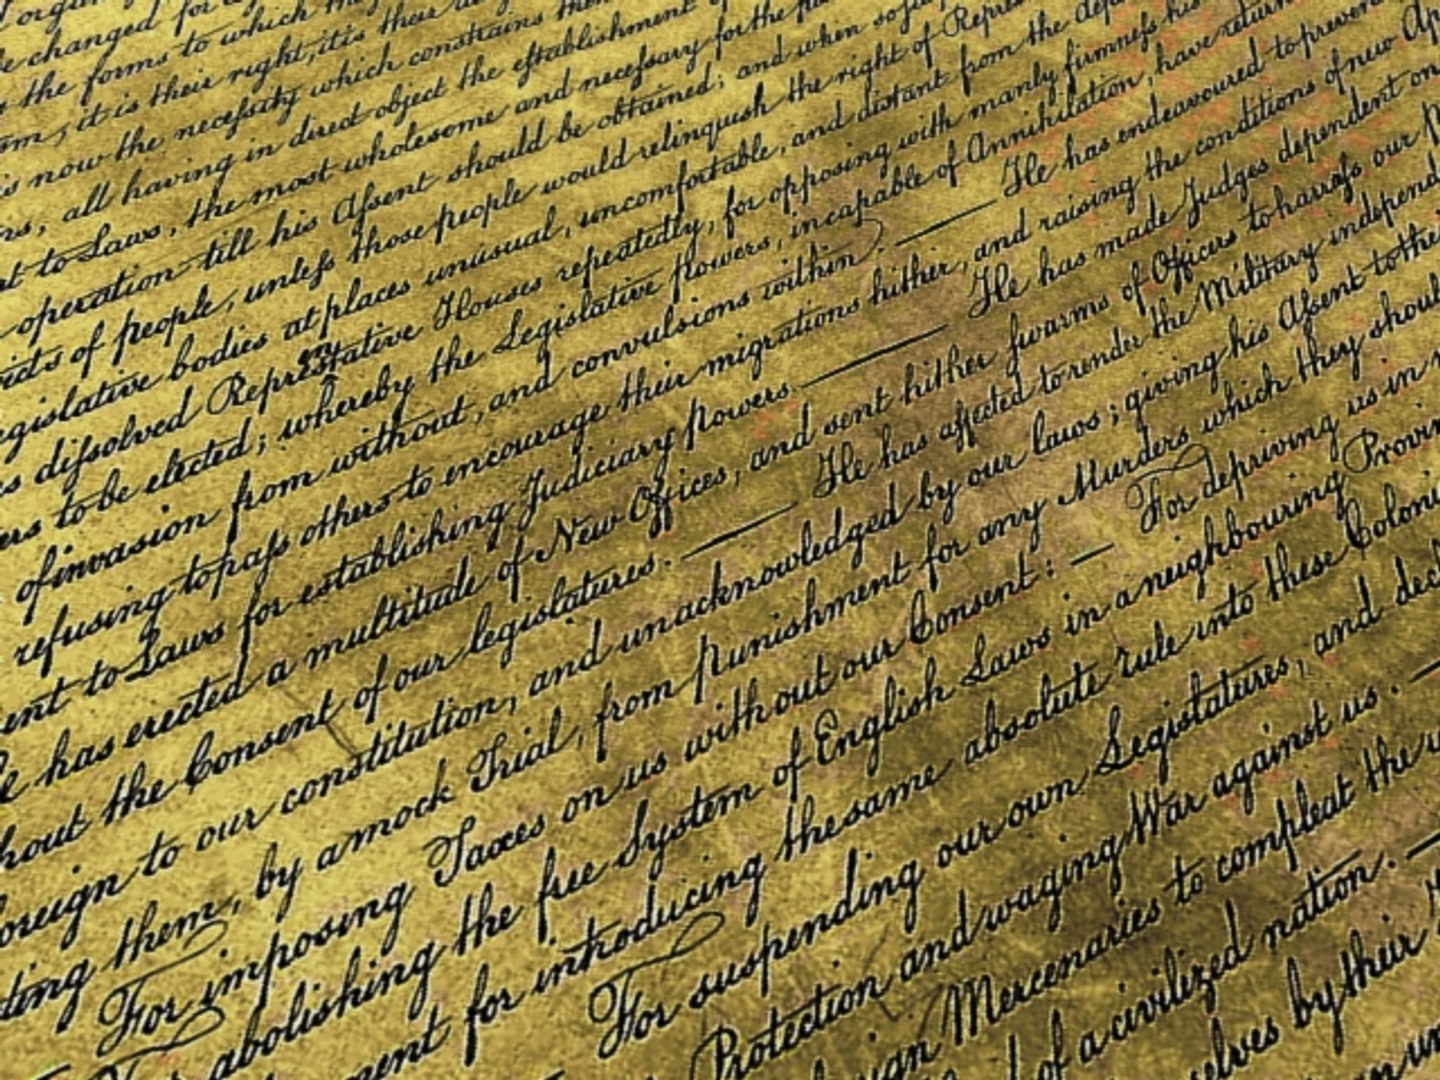 organ
be changed for
the forms to which they
em, it is their right, it is their
is now the necessity which constrains them
rs, all having in direct object the establishment of
t to Laws, the most wholesome and necessary for the pu
operation till his Assent should be obtained; and when so
ricts of people, unless those people would relinquish the right of Repres
egislative bodies at places unusual, uncomfortable, and distant from the depo
s dissolved Representative Houses repeatedly, for opposing with manly firmness his
ers to be elected; whereby the Legislative powers, incapable of Annihilation, have return
of invasion from without, and convulsions within. — He has endeavoured to prevent
refusing to pass others to encourage their migrations hither, and raising the conditions of new Ap
ent to Laws for establishing Judiciary powers. — He has made Judges dependent on
e has erected a multitude of New Offices, and sent hither swarms of Officers to harrass our p
hout the Consent of our legislatures. — He has affected to render the Military independ
oreign to our constitution, and unacknowledged by our laws; giving his Assent to thei
cting them, by a mock Trial, from punishment for any Murders which they shoul
For imposing Taxes on us without our Consent: — For depriving us in m
For abolishing the free System of English Laws in a neighbouring Provin
ment for introducing the same absolute rule into these Coloni
For suspending our own Legislatures, and decl
Protection and waging War against us. —
ign Mercenaries to compleat the w
d of a civilized nation. —
selves by their H
n un